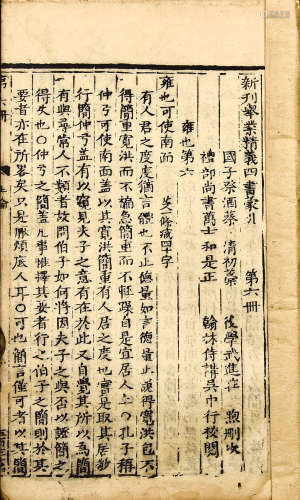 新刊舉業精義四書蒙引 第六冊
國子祭酒蔡 清 初藁
後學武進莊 煦刪次
禮部尚書萬士和是正
翰林侍講吳中行校閱
雍也第六
雍也可使南面
有人君之度度猶言體也不止德量如言德量止說得寬洪邑不
得簡重寬洪而不褊急簡重而不輕躁自是宜居人上〇孔子稱
仲弓可使南面蓋以其寬洪簡重有人君之度也實是取其居敬
行簡仲弓蓋有以窺見夫子之意有在於此又自覺其所以為簡
有與尋常人不類者故問伯子如何將因夫子之與否以證簡之
得失也〇仲弓之簡蓋凡事惟擇其要者行之伯子之簡則於其
要者亦在所畧矣只是厭煩底人耳〇可也簡言僅可者以其簡